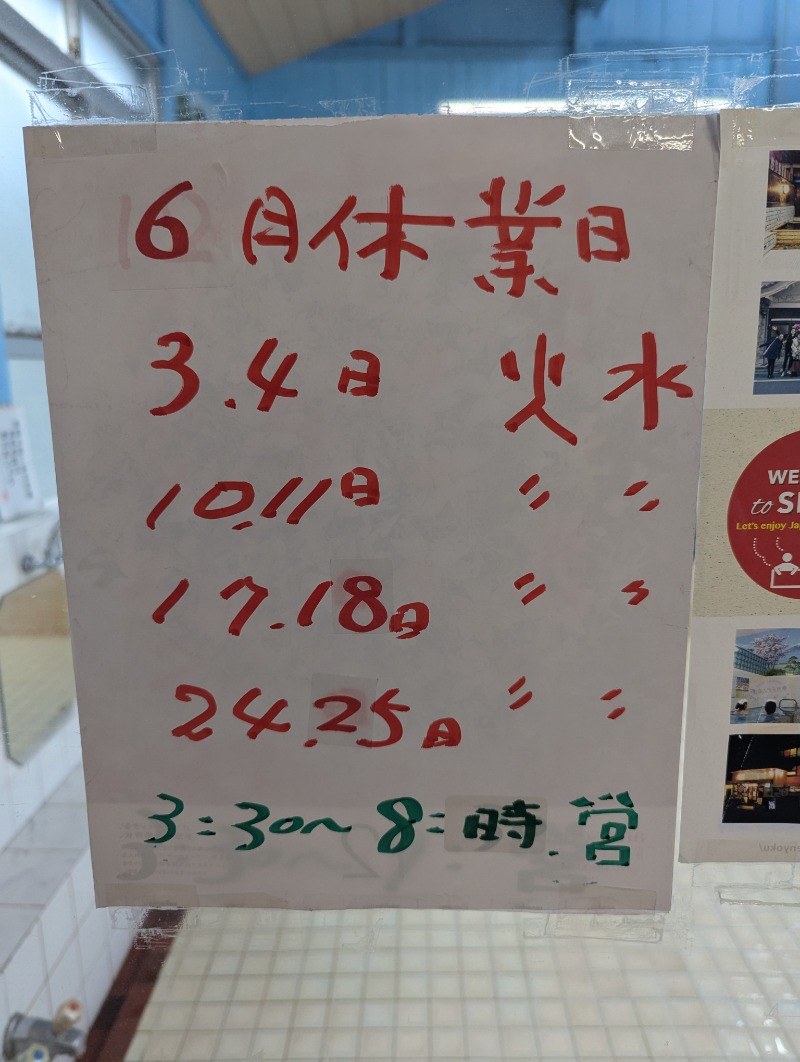 6月休業日
3.4日 火 水
10.11日 〃 〃
17.18日 〃 〃
24.25日 〃 〃
3:30〜8:時.営
WE
to S
Let's enjoy Ja
enyoku/